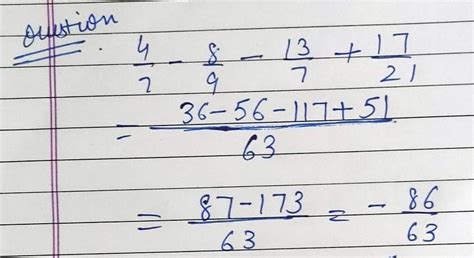 Question
4/7 - 8/9 - 13/7 + 17/21
= 36-56-117+51/63
= 87-173/63 = - 86/63